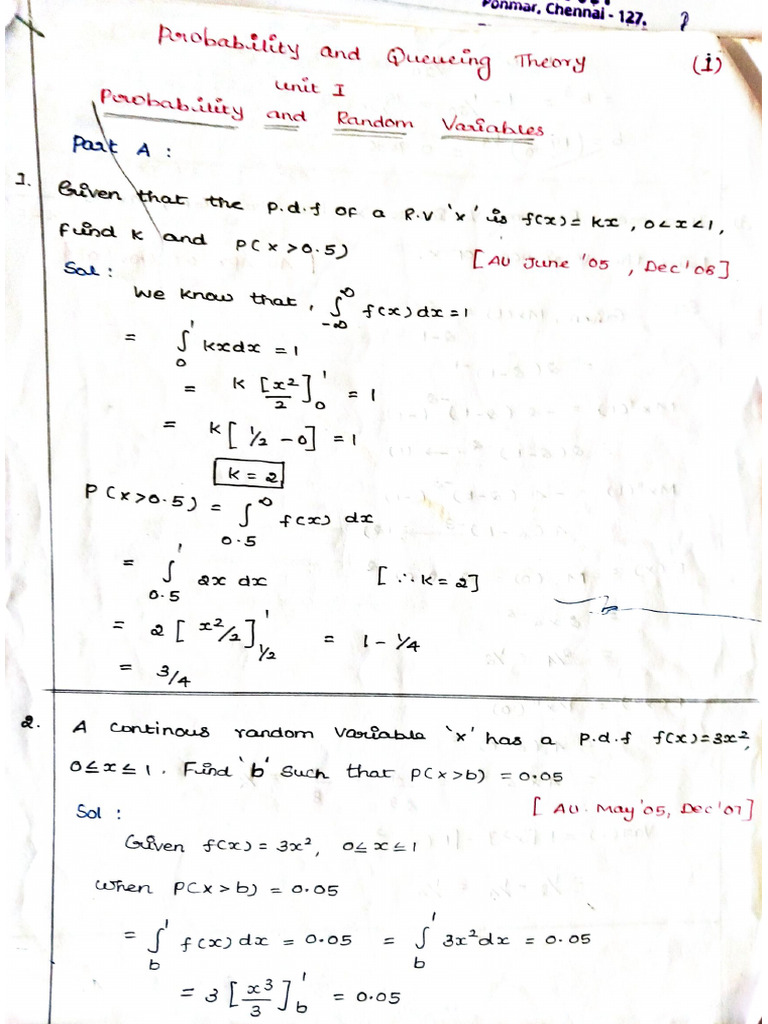 Ponmar, Chennai - 127.
Probability and Queueing Theory (1)
Unit I
Probability and Random Variables
Part A :
1. Given that the p.d.f of a R.V 'x' is f(x) = kx , 0<x<1,
Find k and P(x>0.5) [AU June '05 , Dec'08]
Sol :
We know that , ∫_{-∞}^{∞} f(x) dx = 1
= ∫_0^1 kx dx = 1
= k [x²/2]_0^1 = 1
= k [1/2 - 0] = 1
k = 2
P(x>0.5) = ∫_{0.5}^{∞} f(x) dx
= ∫_{0.5}^1 2x dx [∴ k = 2]
= 2 [x²/2]_{1/2}^1 = 1 - 1/4
= 3/4
2. A continous random variable 'x' has a p.d.f f(x)=3x²,
0≤x≤1. Find 'b' such that P(x>b) = 0.05
Sol : [AU. May '05, Dec'07]
Given f(x) = 3x², 0≤x≤1
When P(x>b) = 0.05
= ∫_b^1 f(x) dx = 0.05 = ∫_b^1 3x² dx = 0.05
= 3 [x³/3]_b^1 = 0.05